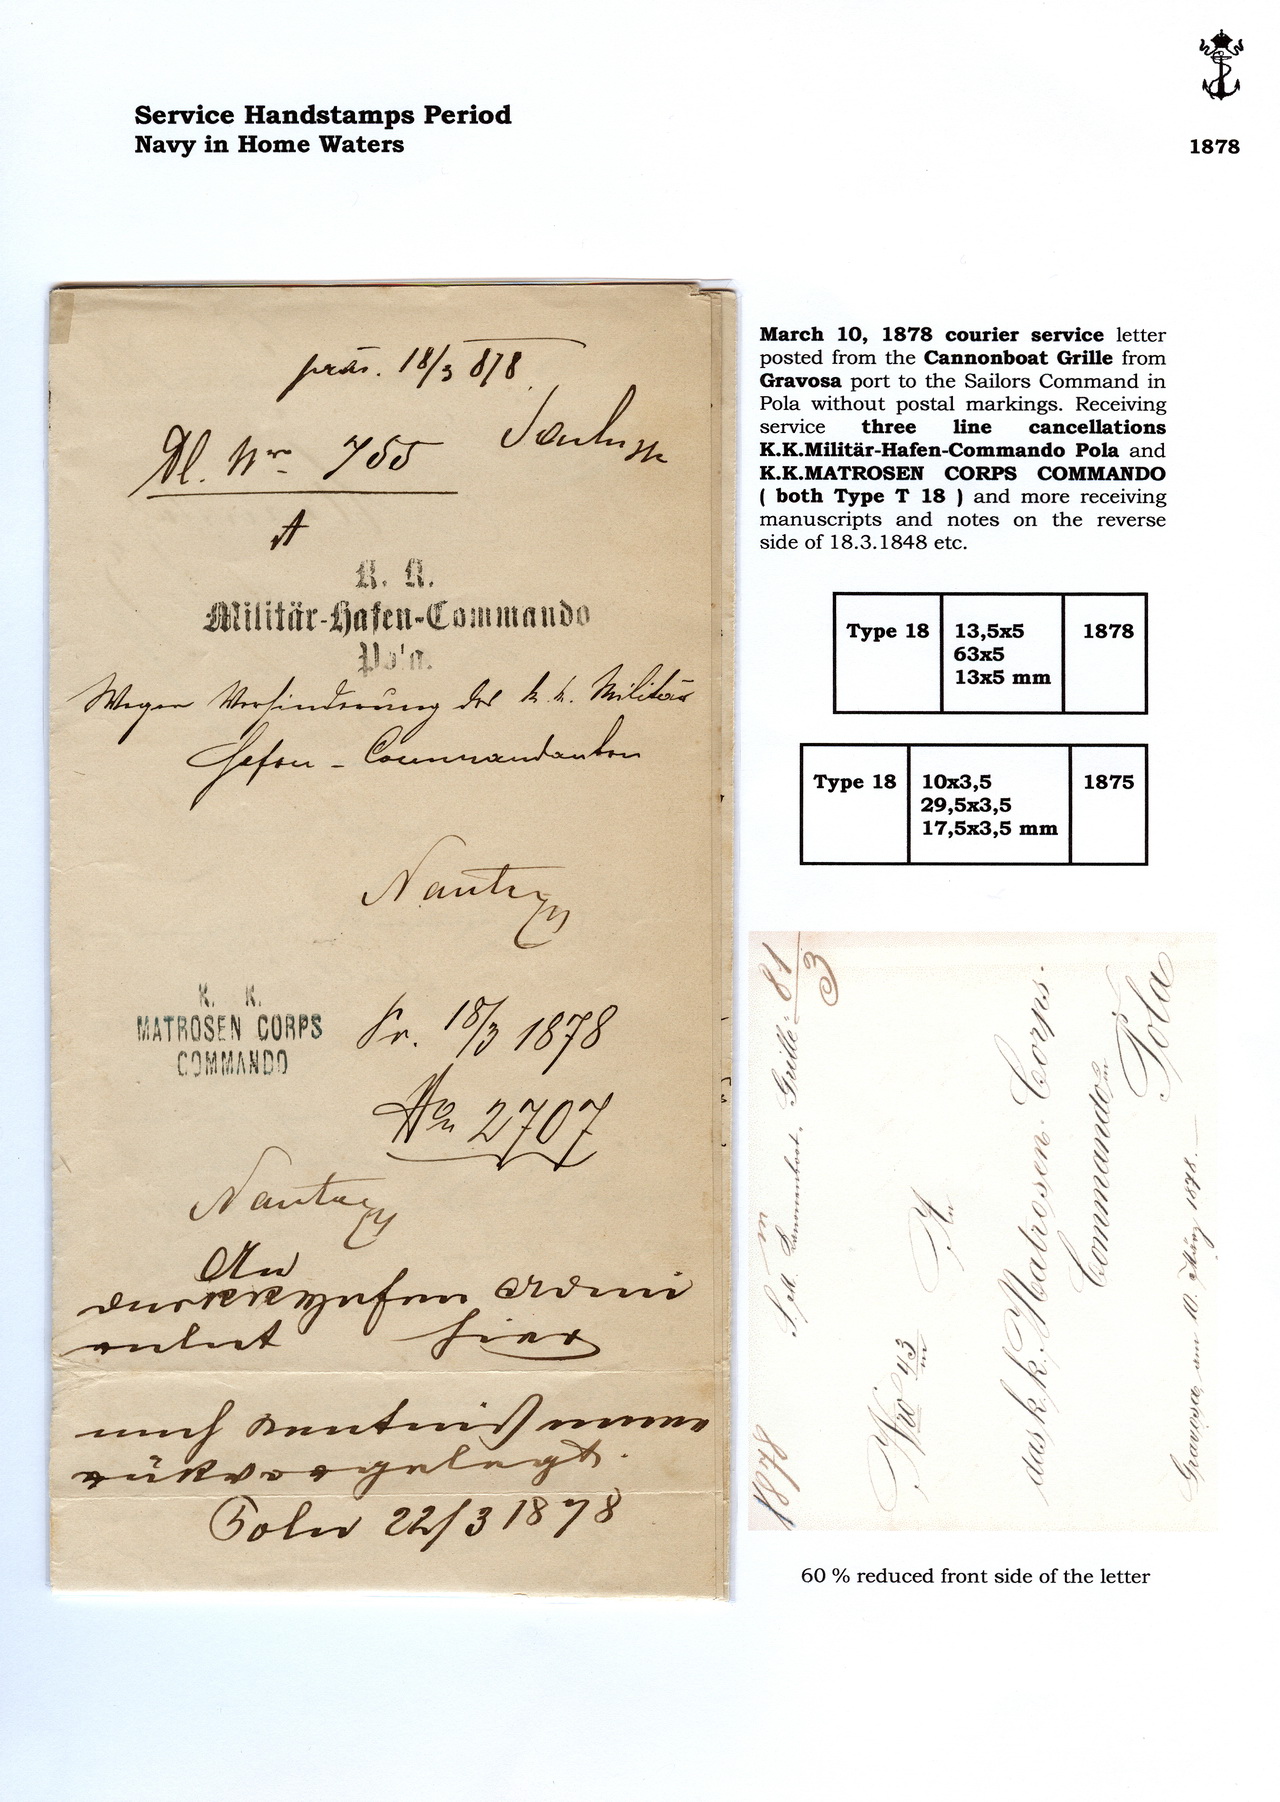 Service Handstamps Period
Navy in Home Waters
1878
präs. 18/3 878
Nro 755
A
K. K.
Militär-Hafen-Commando
Pola.
Wegen Verhinderung des k. k. Militär
Hafen - Commandanten
K. K.
MATROSEN CORPS
COMMANDO
Pr. 18/3 1878
No 2707
An
das k k Hafen Admi
ralat hier
nach Kentniß name
rükvorgelegt.
Pola 22/3 1878
March 10, 1878 courier service letter
posted from the Cannonboat Grille from
Gravosa port to the Sailors Command in
Pola without postal markings. Receiving
service three line cancellations
K.K.Militär-Hafen-Commando Pola and
K.K.MATROSEN CORPS COMMANDO
( both Type T 18 ) and more receiving
manuscripts and notes on the reverse
side of 18.3.1848 etc.
Type 18 13,5x5 1878
63x5
13x5 mm
Type 18 10x3,5 1875
29,5x3,5
17,5x3,5 mm
1878
81/3
S. M. Kanonenboot. Grille
Nro 43
An
das k. k. Matrosen. Corps.
Commando in
Pola
Gravosa am 10. März 1878.
60 % reduced front side of the letter